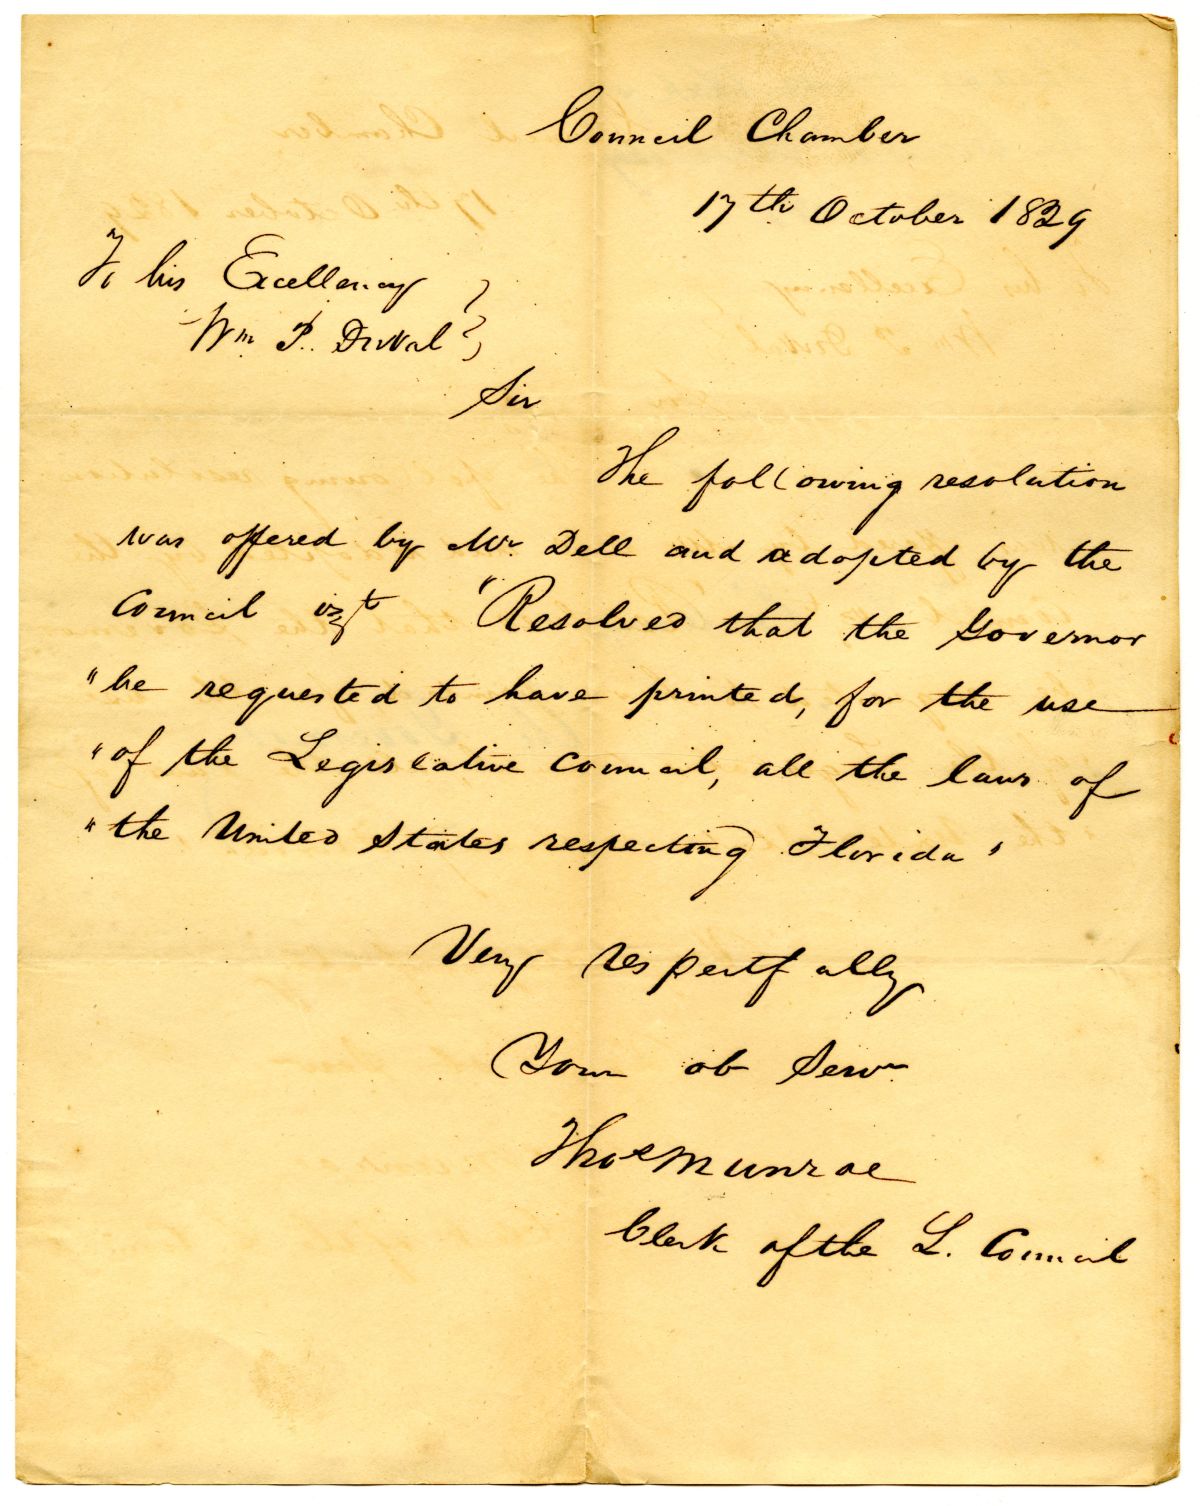 Council Chamber
17th October 1829
To his Excellency
Wm P. DuVal
Sir
The following resolution
was offered by Mr. Dell and adopted by the
Council vizt "Resolved that the Governor
"be requested to have printed, for the use
"of the Legislative Council, all the laws of
"the United States respecting Florida"
Very respectfully
Your ob Serv
Thos Munroe
Clerk of the L. Council